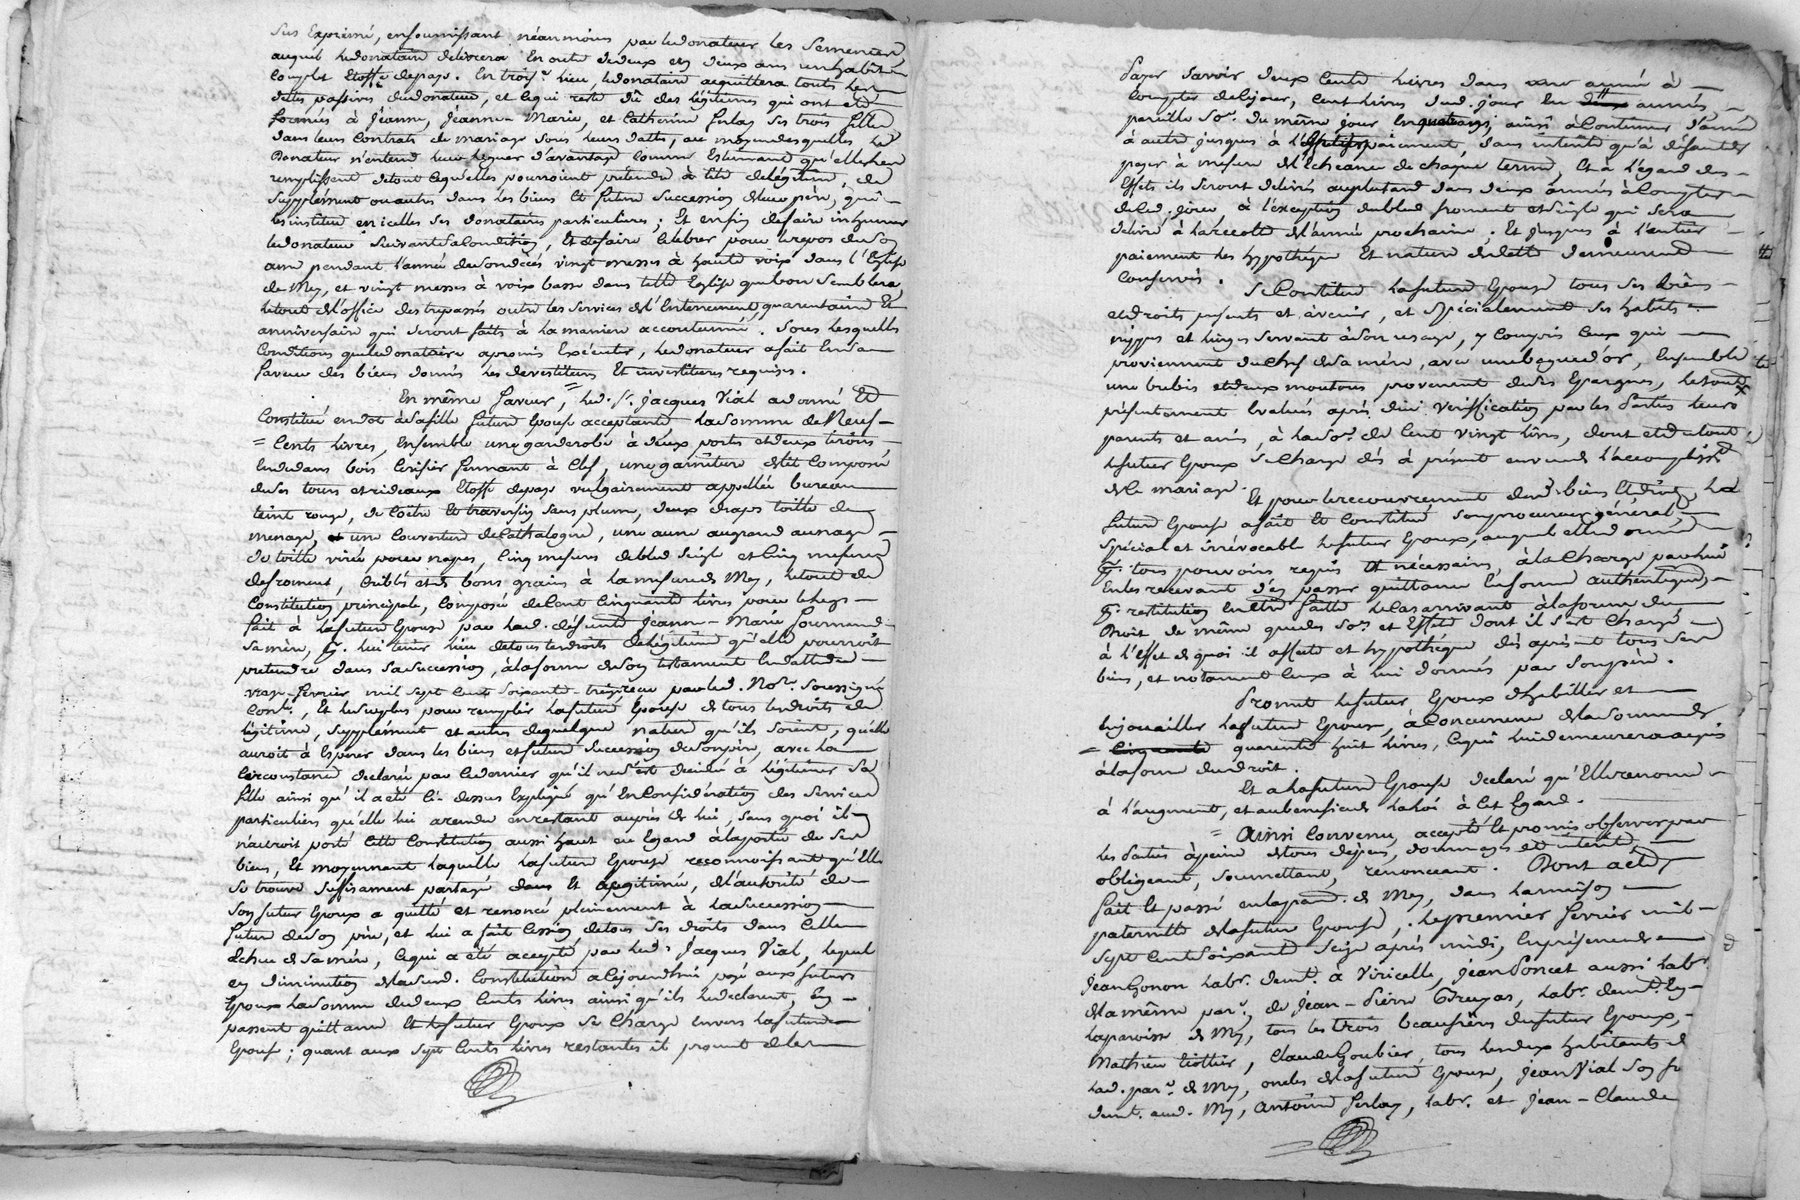 Sus Exprimé, en fournissant néanmoins par le donateur les Semences
auquel le donataire délivrera En outre de deux en deux ans un habit
complet Etoffe de pays. En trois.e lieu, le donataire acquittera toutes les
dettes passives du donateur, et ce qui reste dû des légitimes qui ont été
formées à Jeanne, Jeanne-Marie, et Catherine Ferlay ses trois filles
dans leurs Contrats de mariage sous leurs dattes, au moyen desquelles le
Donateur n'entend leur léguer d'avantage comme Estimant qu'elles
remplissent de tout ce qu'elles pourroient pretendre à titre de légitime, de
supplément ou autre dans les biens et future Succession de leur père, qui
les institue en icelles ses donataires particulieres; Et enfin de faire inhumer
le donateur suivant sa Condition, Et de faire Celebrer pour le repos de son
ame pendant l'année de son décès vingt messes à haute voix dans l'Eglise
de Mey, et vingt messes à voix basse dans telle Eglise que bon Semblera,
le tout de l'office des trepassés outre les Services de l'Enterrement, quarantaine Et
anniversaire qui seront faits à la maniere accoutumée. Sous lesquelles
Conditions que le donataire a promis Exécuter, le donateur a fait En sa
faveur des biens donnés les devestitures Et investitures requises.
En même faveur, led. Sr. Jacques Vial a donné Et
Constitué en dot à sa fille future Epouse acceptante la somme de Neuf-
= Cents livres, Ensemble une garderobe à deux portes et deux tiroirs
au dedans bois Cerisier fermant à Clef, une garniture de lit Composée
de ses tours et rideaux Etoffe de pays vulgairement appellée bureau
teint rouge, de Coëtre Et traversin sans plume, deux draps toille de
menage, une Couverture de Cathalogne, une aune au grand aunage
de toille pour napes, Cinq mesures de bled Seigle et Cinq mesures
de froment, Criblés et de bons grains à la mesure de Mey, le tout de
Constitution principale, Composée de Cent Cinquante livres pour le legs
fait à la future Epouse par lad. défunte Jeanne-Marie fournand
sa mère, pr. lui tenir lieu de tous les droits de légitime qu'elle pourroit
pretendre dans sa succession, à la forme de son testament En datte du
février mil sept Cent Soixante-treize reçu par led. Nore. Soussigné
Conté., Et le surplus pour remplir la future Epouse de tous les droits de
légitime, supplément et autres de quelque nature qu'ils soient, qu'elle
auroit à Espérer dans les biens et future succession de son père, avec la
Circonstance declarée par Ce dernier qu'il ne s'est decidé à légitimer sa
fille ainsi qu'il a été Ci-dessus Expliqué qu'En Considération des Services
particuliers qu'elle lui a rendu en restant auprès de lui, sans quoi il
n'auroit porté Cette Constitution aussi haut eu Egard à la portée de ses
biens, Et moyennant laquelle la future Epouse reconnoissant qu'Elle
se trouve suffisament partagée et légitimée, de l'autorité de
Son futur Epoux a quitté et renoncé pleinement à la succession
future de son père, et lui a fait Cession de tous ses droits dans Celle
Echue de sa mère, Ce qui a été accepté par led. Sr. Jacques Vial, lequel
en diminution de la susd. Constitution a Cejourd'hui payé aux futurs
Epoux la somme de deux Cents livres ainsi qu'ils le declarent, En
passent quittance Et le futur Epoux se Charge envers la future
Epouse; quant aux sept Cents livres restantes il promet de les
Payer Savoir deux Cents livres dans une année à
Compter de Cejour, Cent livres dud. jour En années,
pareille Some. du même jour En quatre ans, ainsi à Continuer d'année
à autre jusques à l'Entier paiement, sans intérêt qu'à défaut de
payer à mesure de l'Echeance de chaque terme, Et à l'égard des
Effets ils seront délivrés au plus tard dans deux années à Compter
de Ced. jour à l'exception du bled froment et Seigle qui sera
délivré à la recolte de l'année prochaine; Et jusques à l'entier
paiement les hypothéque Et nature de dette demeurent
Conservés.
Se Constitue la future Epouse tous ses biens
et droits presents et avenir, et spécialement ses habits
nippes et linges servant à son usage, y Compris Ceux qui
proviennent du Chef de sa mère, avec une bague d'or, Ensemble
une brebis et deux moutons provenant de ses Epargnes, le tout
présentement Evalués après due verification par les Parties leurs
parents et amis, à la Some. de Cent vingt livres, dont et du tout
le futur Epoux se Charge dès à présent envers l'accomplisst.
de Ce mariage.
Et pour le recouvrement desd. biens Et droits la
future Epouse a fait Et Constitué son procureur général
Spécial et irrévocable le futur Epoux, auquel elle donne
pr. tous pouvoirs requis Et nécessaires, à la Charge par lui
En les recevant d'en passer quittance En forme authentique,
pr. restitution En être faite le Cas arrivant à la forme du
Droit, de même que des Somes. et Effets dont il s'est Chargé
à l'effet de quoi il affecte et hypothéque dès à présent tous ses
biens, et notament Ceux à lui donnés par son père.
Promet le futur Epoux d'habiller et
bijouailler la future Epouse, à Concurrence de la somme de
= Cinquante quarente huit livres, Ce qui lui demeurera acquis
à la forme du droit.
Et a la future Epouse declaré qu'Elle renonce
à l'augment, et au benefice de la loi à Cet Egard.
= Ainsi Convenu, accepté Et promis observer par
les Parties à peine de tous dépens, dommages et intérêts,
obligeant, soumettant, renonceant. Dont acte,
fait Et passé de Mey, dans la maison
paternelle de la future Epouse, le premier février mil-
Sept Cent Soixante Seize après midi, En présence de
Jean Gonon labr. demt. à Viricelle, Jean Poncet aussi labr.
de la même parse., de Jean-Pierre labr. demt. En
la paroisse de Mey, tous les trois beaufrères du futur Epoux,
Mathieu tiollier, Claude Goubier, tous les deux habitants de
lad. parse. de Mey, oncles de la future Epouse, Jean Vial son fr
demt. aud. Mey, Antoine Ferlay, labr. et Jean-Claude